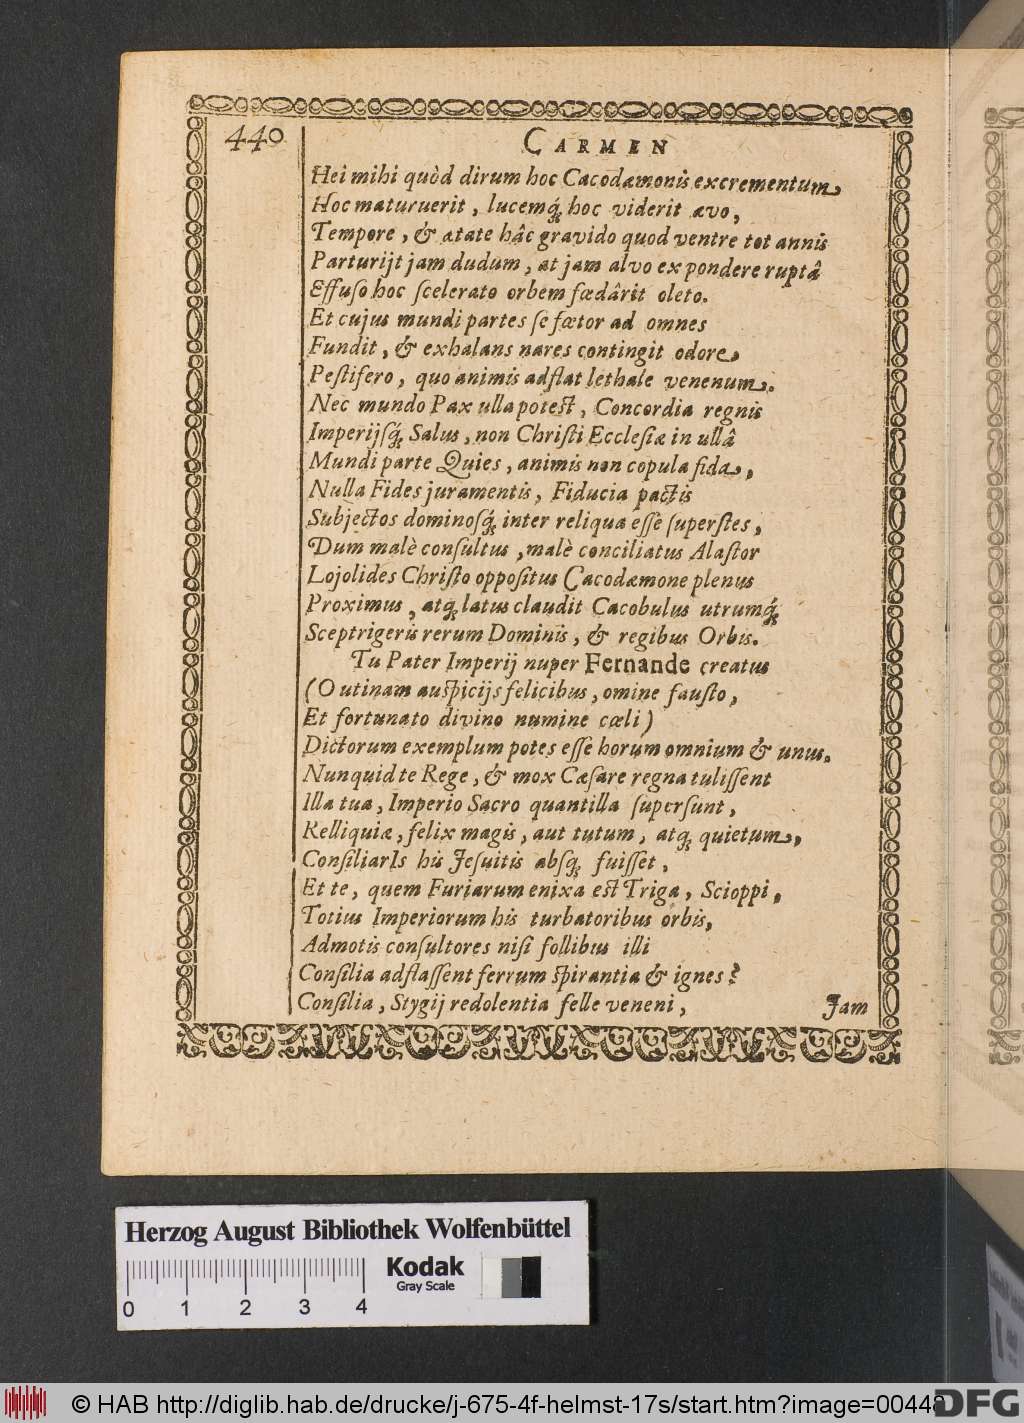 440
CARMEN
Hei mihi quòd dirum hoc Cacodæmonis excrementum,
Hoc maturuerit, lucemq́; hoc viderit ævo,
Tempore, & ætate hâc gravido quod ventre tot annis
Parturijt jam dudum, at jam alvo expondere ruptâ
Effuso hoc scelerato orbem fœdârit oleto.
Et cujus mundi partes se fœtor ad omnes
Fundit, & exhalans nares contingit odore,
Pestifero, quo animis adflat lethale venenum.
Nec mundo Pax ulla potest, Concordia regnis
Imperijsq́; Salus, non Christi Ecclesiæ in ullâ
Mundi parte Quies, animis non copula fida,
Nulla Fides juramentis, Fiducia pactis
Subjectos dominosq́; inter reliqua esse superstes,
Dum malè consultus, malè conciliatus Alastor
Lojolides Christo oppositus Cacodæmone plenus
Proximus, atq; latus claudit Cacobulus utrumq́;
Sceptrigeris rerum Dominis, & regibus Orbis.
Tu Pater Imperij nuper Fernande creatus
(O utinam auspicijs felicibus, omine fausto,
Et fortunato divino numine cœli)
Dictorum exemplum potes esse horum omnium & unus.
Nunquid te Rege, & mox Cæsare regna tulissent
Illa tua, Imperio Sacro quantilla supersunt,
Relliquiæ, felix magis, aut tutum, atq; quietum,
ConsiliarIs his Jesuitis absq; fuisset,
Et te, quem Furiarum enixa est Triga, Scioppi,
Totius Imperiorum his turbatoribus orbis,
Admotis consultores nisi follibus illi
Consilia adflassent ferrum spirantia & ignes?
Consilia, Stygij redolentia felle veneni,
Jam
Herzog August Bibliothek Wolfenbüttel
Kodak
Gray Scale
0 1 2 3 4
© HAB http://diglib.hab.de/drucke/j-675-4f-helmst-17s/start.htm?image=00448
DFG